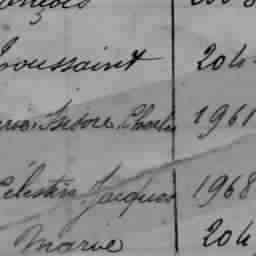 Toussaint 204
Isidore Charles 1961
Célestin Jacques 1968
Marie 204